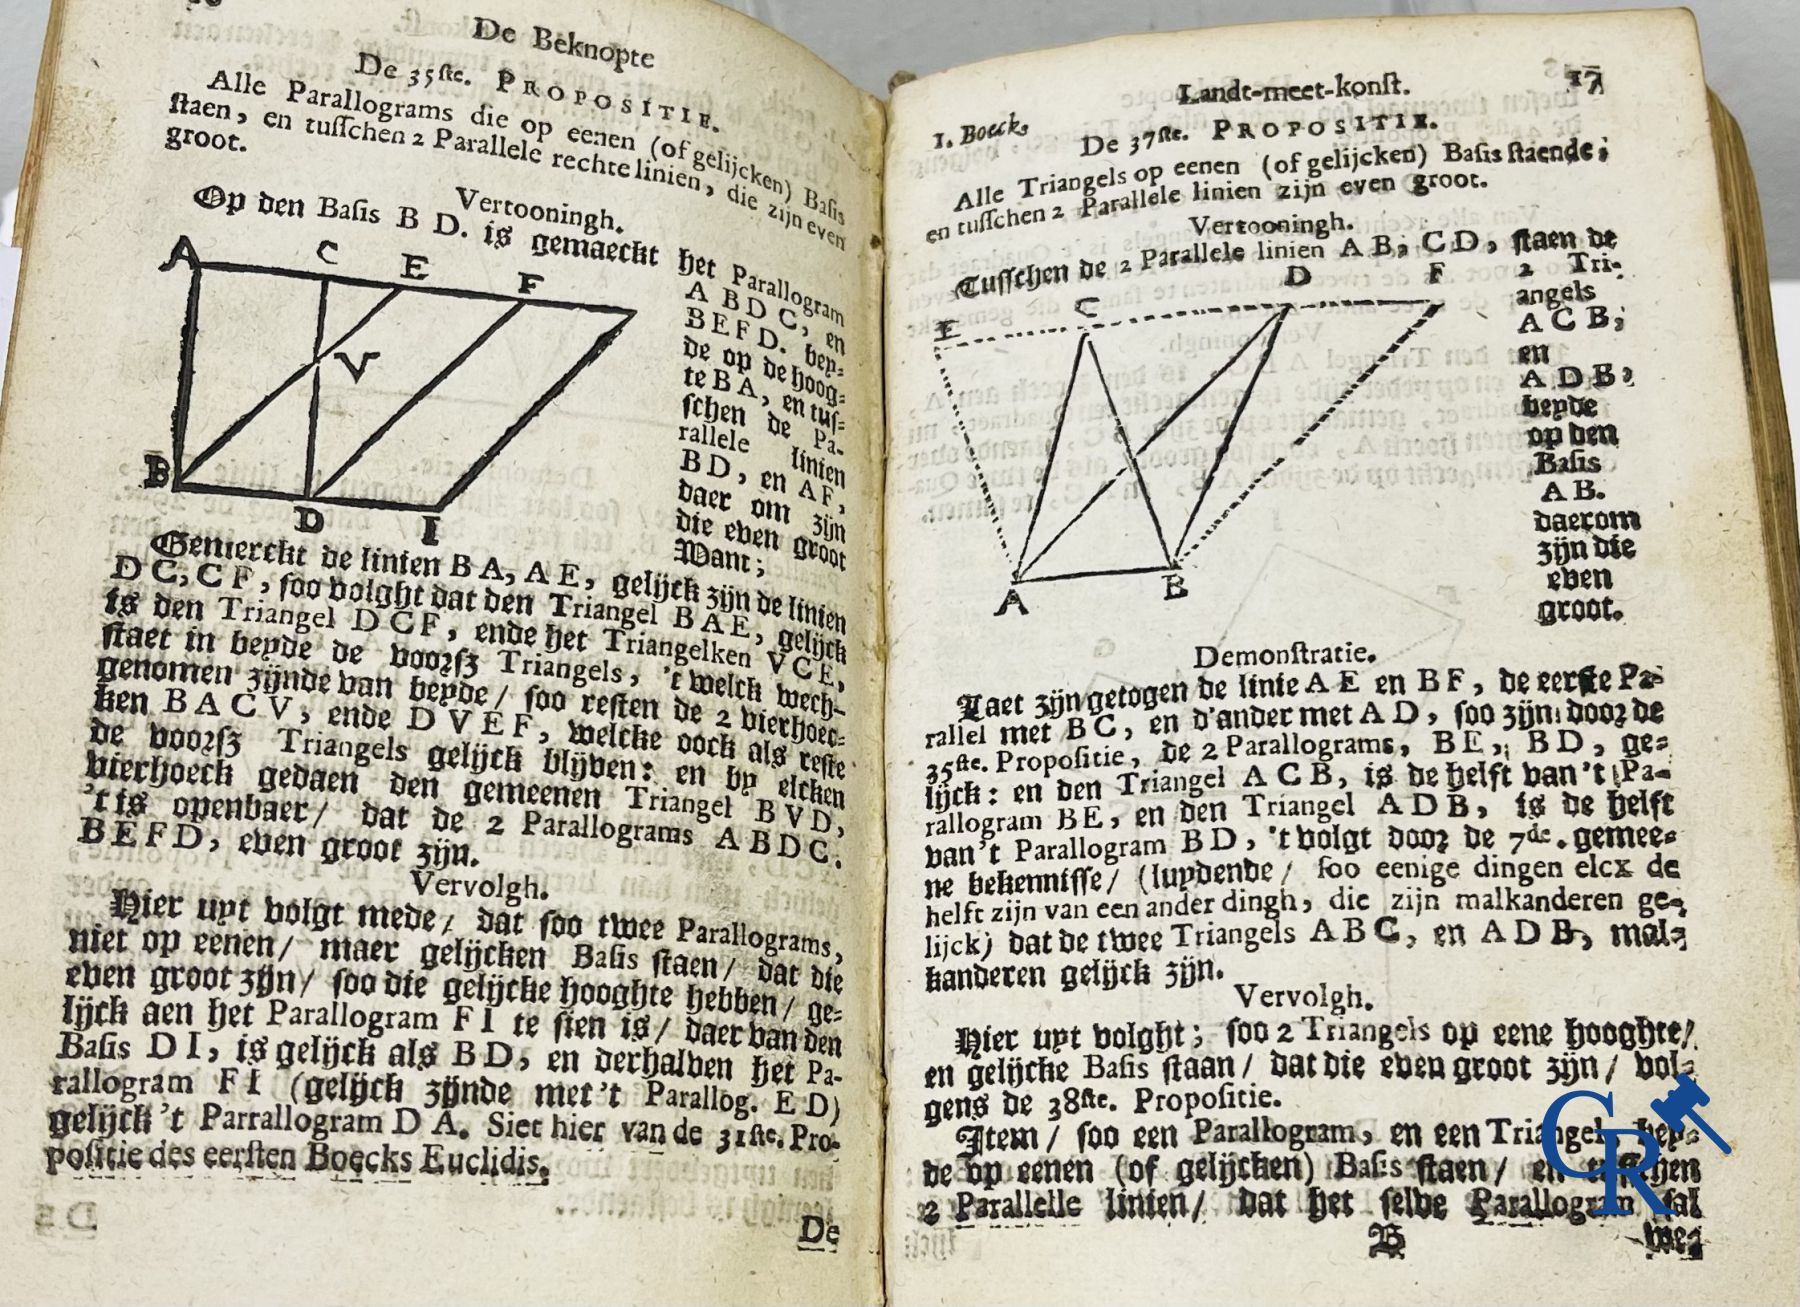 De Beknopte
De 35ste. PROPOSITIE.
Alle Parallograms die op eenen (of gelijcken) Basis
staen, en tusschen 2 Parallele rechte linien, die zijn even
groot.
Vertooningh.
Op den Basis B D. is gemaeckt het Parallogram
A B D C, en
B E F D. bey-
de op de hoog-
te B A, en tus-
schen de Pa-
rallele linien
B D, en A F,
daer om zijn
die even groot
Want;
A C E F
V
B D I
Gemerckt de linien B A, A E, gelijck zijn de linien
D C, C F, soo volght dat den Triangel B A E, gelijck
is den Triangel D C F, ende het Triangelken V C E,
staet in beyde de voorsz Triangels, 't welck wech-
genomen zijnde van beyde / soo resten de 2 vierhoec-
ken B A C V, ende D V E F, welcke oock als reste
de voorsz Triangels gelijck blijven: en by elcken
vierhoeck gedaen den gemeenen Triangel B V D,
't is openbaer / dat de 2 Parallograms A B D C.
B E F D, even groot zijn.
Vervolgh.
Hier uyt volgt mede / dat soo twee Parallograms,
niet op eenen / maer gelijcken Basis staen / dat die
even groot zijn / soo die gelijcke hooghte hebben / ge-
lijck aen het Parallogram F I te sien is / daer van den
Basis D I, is gelijck als B D, en derhalven het Pa-
rallogram F I (gelijck zijnde met 't Parallog. E D)
gelijck 't Parrallogram D A. Siet hier van de 31ste. Pro-
positie des eersten Boecks Euclidis.
De
1. Boeck.
Landt-meet-konst.
17
De 37ste. PROPOSITIE.
Alle Triangels op eenen (of gelijcken) Basis staende,
en tusschen 2 Parallele linien zijn even groot.
Vertooningh.
Tusschen de 2 Parallele linien A B, C D, staen de
2 Tri-
angels
A C B,
en
A D B,
beyde
op den
Basis
A B.
daerom
zijn die
even
groot.
E C D F
A B
Demonstratie.
Laet zijn getogen de linie A E en B F, de eerste Pa-
rallel met B C, en d'ander met A D, soo zijn door de
35ste. Propositie, de 2 Parallograms, B E, B D, ge-
lijck: en den Triangel A C B, is de helft van 't Pa-
rallogram B E, en den Triangel A D B, is de helft
van 't Parallogram B D, 't volgt door de 7de. gemee-
ne bekennisse / (luydende / soo eenige dingen elcx de
helft zijn van een ander dingh, die zijn malkanderen ge-
lijck) dat de twee Triangels A B C, en A D B, mal-
kanderen gelijck zijn.
Vervolgh.
Hier uyt volght; soo 2 Triangels op eene hooghte /
en gelijcke Basis staan / dat die even groot zijn / vol-
gens de 38ste. Propositie.
Item / soo een Parallogram, en een Triangel, bey-
de op eenen (of gelijcken) Basis staen / en tusschen
2 Parallelle linien / dat het selve Parallogram sal
B
we-
CR